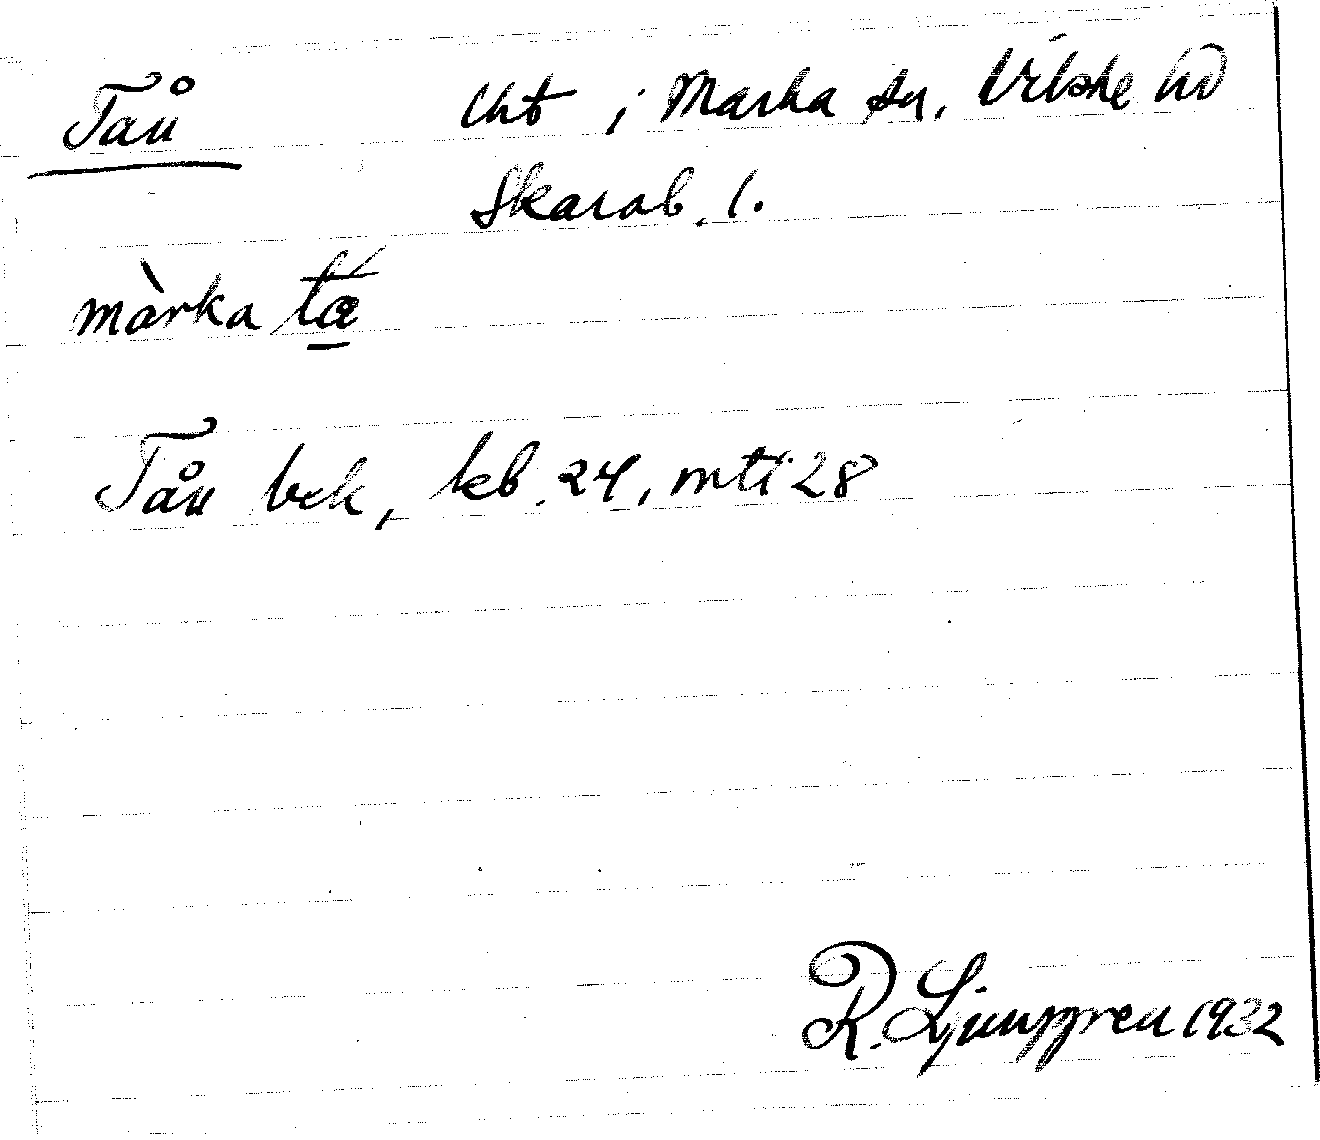 Tån Uht i Marka sn, Vilske hd
Skarab. l.
màrka tæ
Tån bek, kb. 24, mti 28
R. Ljunggren 1932